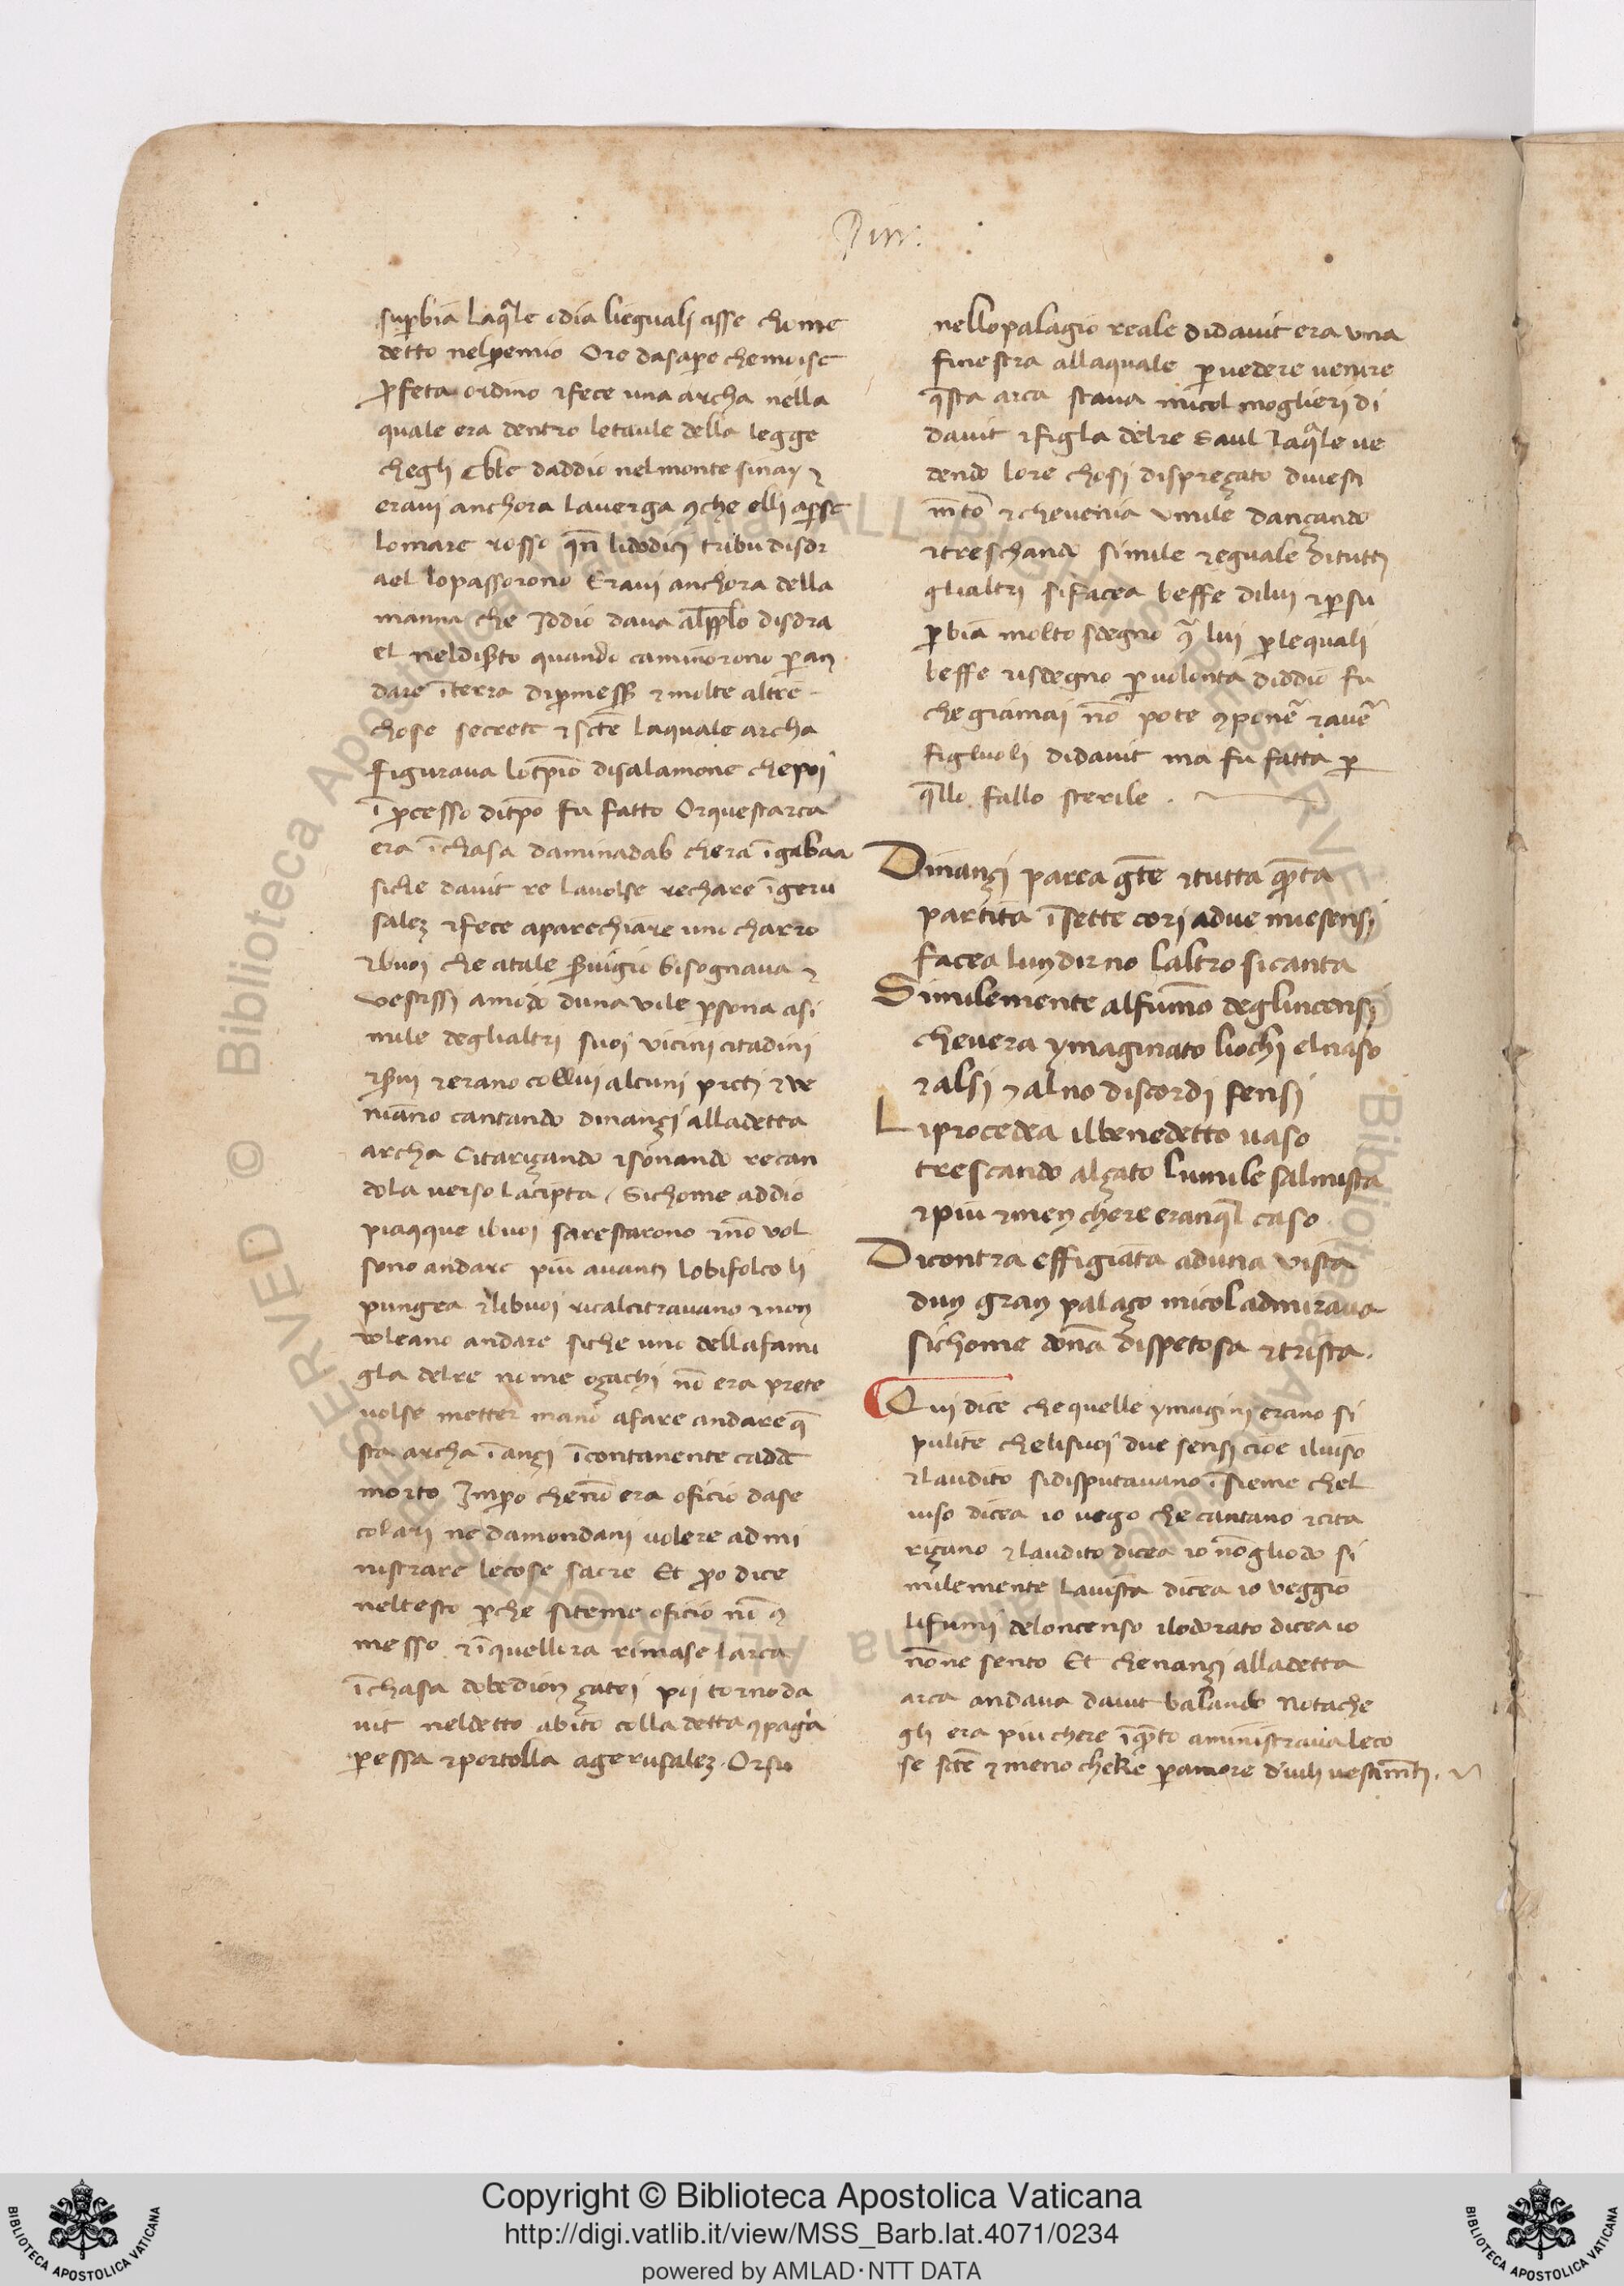 Pur.
suꝑbia laqᷓle odia liequali asse chome
detto nelꝓemio Ore dasaꝑe chemoise
ꝓfeta ordino ⁊fece una archa nella
quale era dentro letaule della legge
chegli ebbe daddio nelmonte sinay ⁊
eravi anchora lauerga ꝯche elli aꝑse
lomare rosso qn̄ lidodicj tribu disdr
ael lopassorono Eravi anchora della
manna che Iddio dava alpp̄lo disdra
el neldiserto quando caminorono ꝑan
dare ī terra diꝓmess. ⁊molte altre
chose secrete ⁊scte laquale archa
figurava lotp̄io disalamone chepoi
ī ꝓcesso ditpo fu fatto Orquestarca
era ī chasa daminadab chera ī gabaa
siche davit re lavolse rechare ī geru
salez ⁊fece aparechiare uno charro
⁊buoi che atale ẜuigio bisognava ⁊
vestissj amodo duna vile ꝑsona asi
mile deglialtri suoi vicini citadini
⁊ẜui ⁊erano collui alcuni preti ⁊ve
niāno cantando dinançi alladetta
archa Citariçando ⁊sonando recan
dola verso lacipta / Sichome addio
piacque ibuoi sarestarono ⁊nō vol
sono andare piu avantj lobifolco li
pungea ⁊libuoi ricalcitravano ⁊non
voleano andare siche uno dellafami
gla delre nome oçachi nō era prete
volse metter mano afare andare q̄
sta archa ī ançi īcontanente cadde
morto Imꝑo chenō era oficio dase
colari ne damondani volere admi
nistrare lecose sacre Et ꝑo dice
neltesto ꝑche siteme oficio nō ꝯ
messo ⁊ī quellora rimase larca
ī chasa dobedion gatei poi tornoda
vit neldetto abito colla detta ꝯpagīa
ꝑessa ⁊portolla agerusalez. Orsu
nellopalagio reale didavit era una
finestra allaquale ꝑ vedere venire
q̄sta arca stava micol moglieri di
davit ⁊figla delre Saul laqᷓle ve
dendo lore chosi dispreçato divesti
m̄to ⁊chevenia umile dançando
⁊treschando simile ⁊eguale ditutti
glialtri sifacea beffe dilui ⁊ꝑsu
ꝑbia molto sdegno ꝯᷓ lui ꝑlequali
beffe ⁊isdegno ꝑ volonta diddio fu
che giamai nō pote ꝯponeᷓ ⁊aveᷓ
figluoli didavit ma fu fatta ꝑ
q̄llo fallo sterile .
Dinançi parea gēte ⁊tutta qᷓnta
partita ī sette cori adue miesensj
facea luŋdir no laltro sicanta
Similemente alfumo deglincensj
chevera ymaginato liochi elnaso
⁊alsi ⁊alno discordi fensj
Liprocedea ilbenedetto vaso
trescando alçato lumile salmista
⁊piu ⁊men chere eranq̄l caso
Dicontra effigiata aduna vista
dun gran palaço micol admirava
sichome dona dispetosa ⁊trista.
Qui dice chequelle ymagini erano si
pulite chelisuoi due sensj cioe iluiso
⁊laudito sidisputavano īsieme chel
viso dicea io vego che cantano ⁊cita
riçano ⁊laudito dicea io nōgliodo si
milemente lavista dicea io veggio
lifumi deloncenso ⁊lodorato dicea io
nōne sento Et chenançi alladetta
arca andava davit balando Notache
gli era piu chere ī qᷓnto aministrava leco
se scte ⁊ meno cheRe ꝑamore dvili vestimēti.
Copyright © Biblioteca Apostolica Vaticana
http://digi.vatlib.it/view/MSS_Barb.lat.4071/0234
powered by AMLAD·NTT DATA